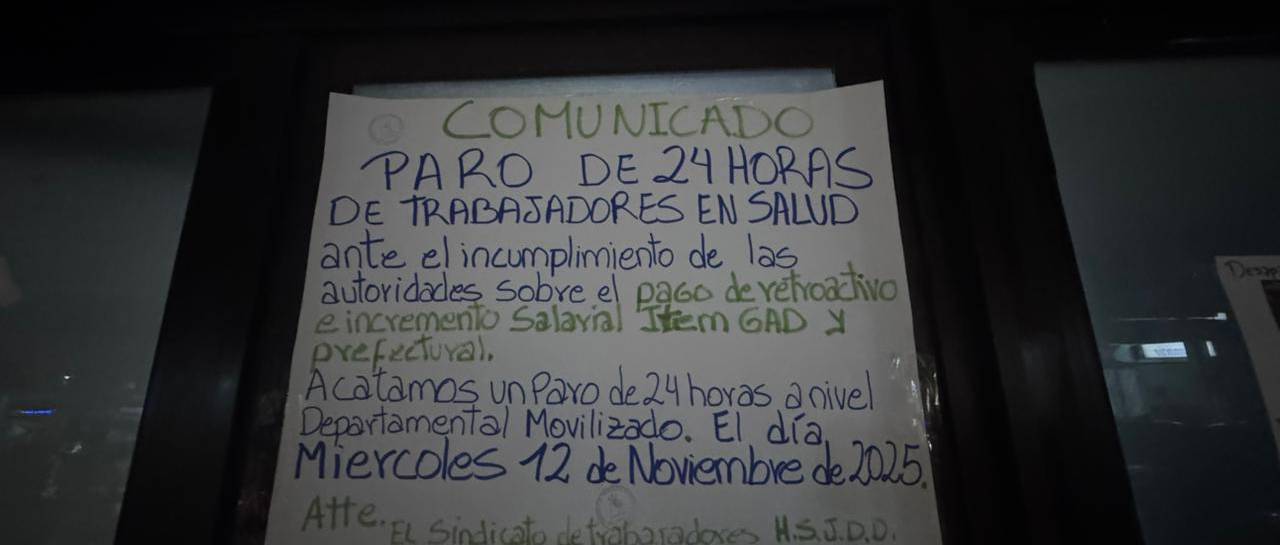 COMUNICADO
PARO DE 24 HORAS
DE TRABAJADORES EN SALUD
ante el incumplimiento de las
autoridades sobre el pago de retroactivo
e incremento Salarial Item GAD y
prefectural.
Acatamos un Paro de 24 horas a nivel
Departamental Movilizado. El día
Miercoles 12 de Noviembre de 2025.
Atte.
EL Sindicato de trabajadores H.S.J.D.D.